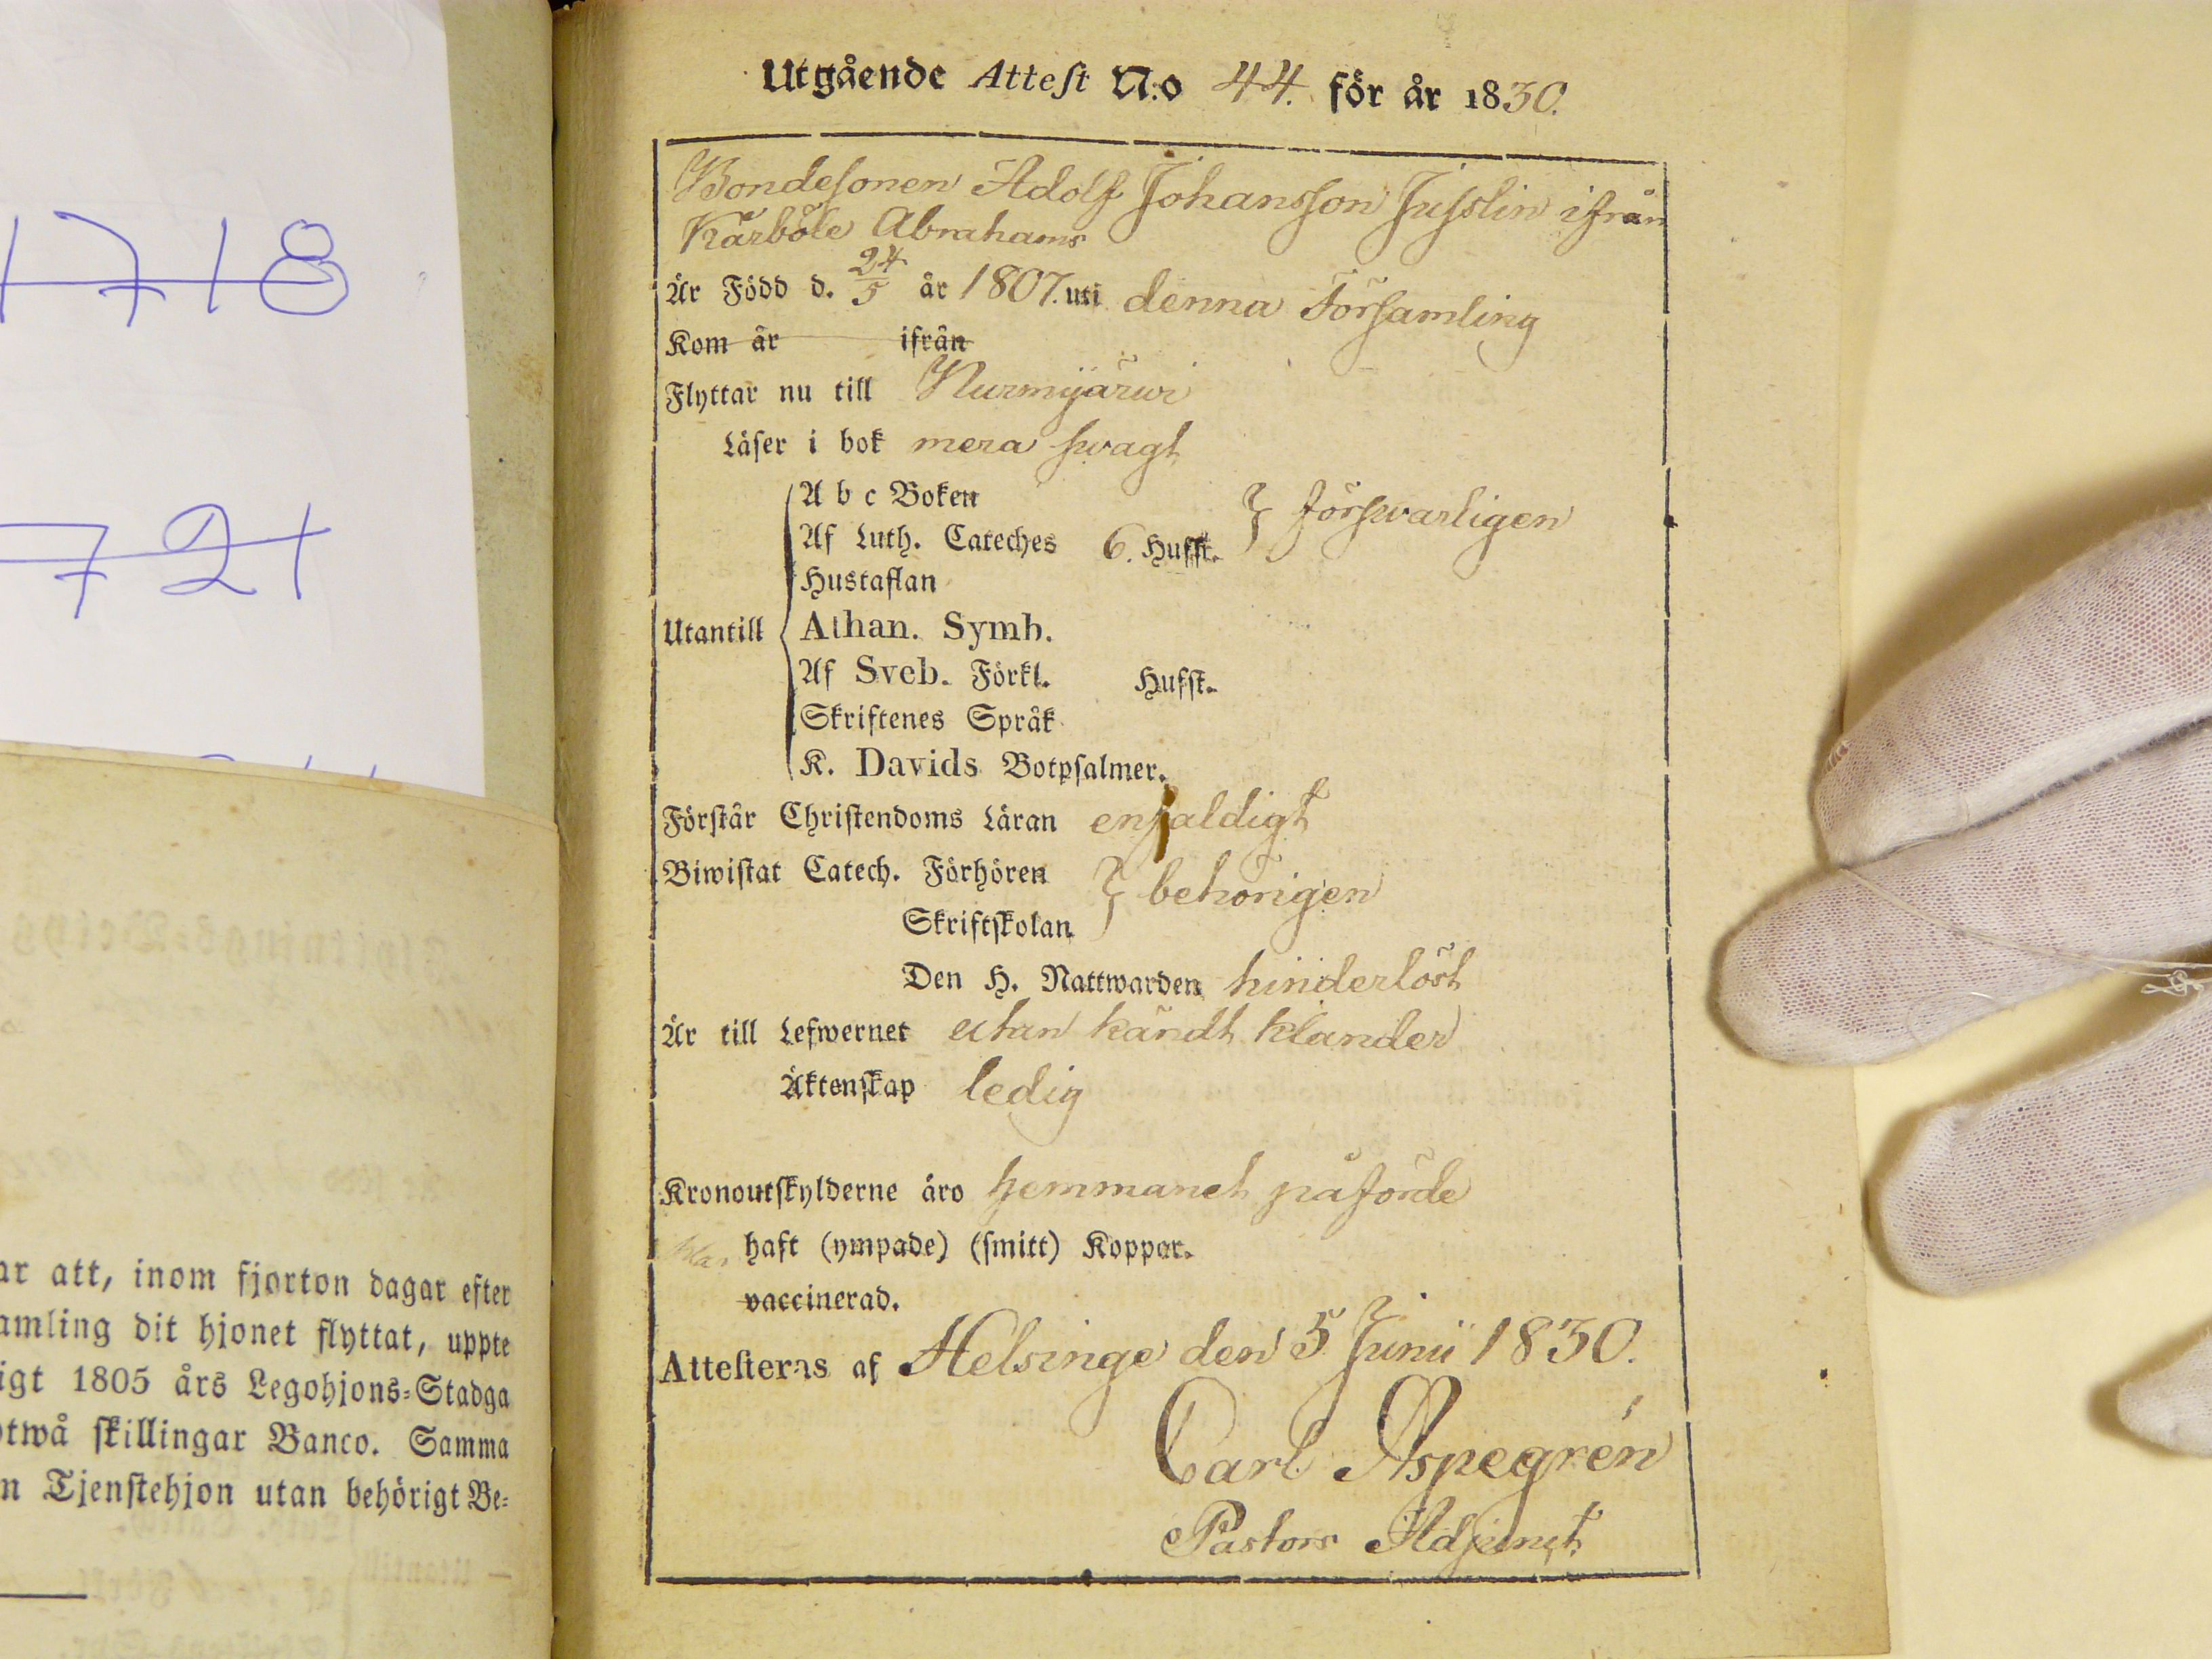 1718
721
ar att, inom fjorton dagar efter
amling dit hjonet flyttat, uppte
igt 1805 års Legohjons-Stadga
otwå skillingar Banco. Samma
n Tjenstehjon utan behörigt Be-
Utgående Attest N:o 44. för år 1830.
Bondesonen Adolf Johansson Jusslin ifrån
Kårböle Abrahams
Är Född d. 24/5 år 1807. uti denna Församling
Kom år ifrån
Flyttar nu till Nurmijärwi
Läser i bok mera swagt
A b c Boken } förswarligen
Af Luth. Cateches 6. Hufst.
Hustaflan
Utantill { Athan. Symb.
Af Sveb. Förkl. Hufst.
Skriftenes Språk
K. Davids Botpsalmer.
Förstår Christendoms Läran enfaldigt
Biwistat Catech. Förhören } behörigen
Skriftskolan
Den H. Nattwarden hinderlöst
Är till Lefwernet utan kändt klander
Äktenskap ledig
Kronoutskylderne äro hemmanet påförde
haft (ympade) (smitt) Koppor.
vaccinerad.
Attesteras af Helsinge den 5 Junii 1830.
Carl Aspegrén
Pastors Adjunct.